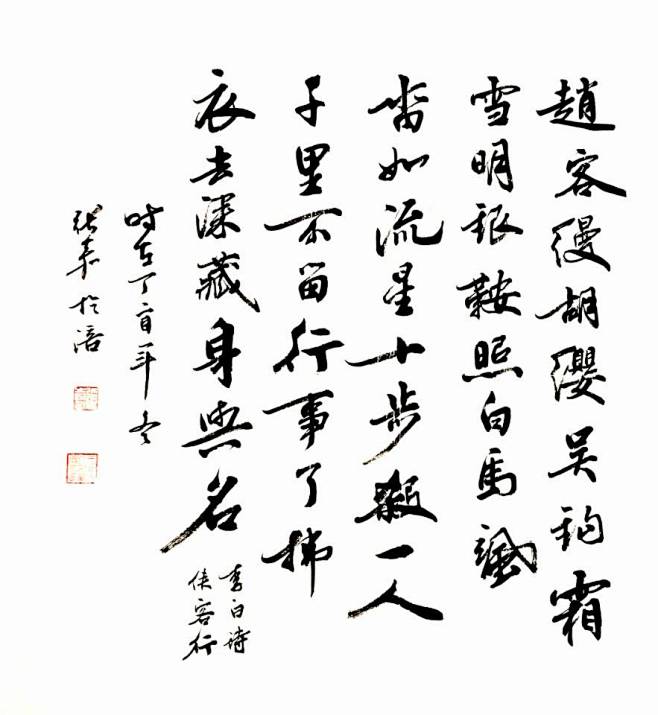 趙客縵胡纓吳鈎霜
雪明銀鞍照白馬颯
沓如流星十步殺一人
千里不留行事了拂
衣去深藏身與名
李白詩
俠客行
時在丁酉年冬
於涪